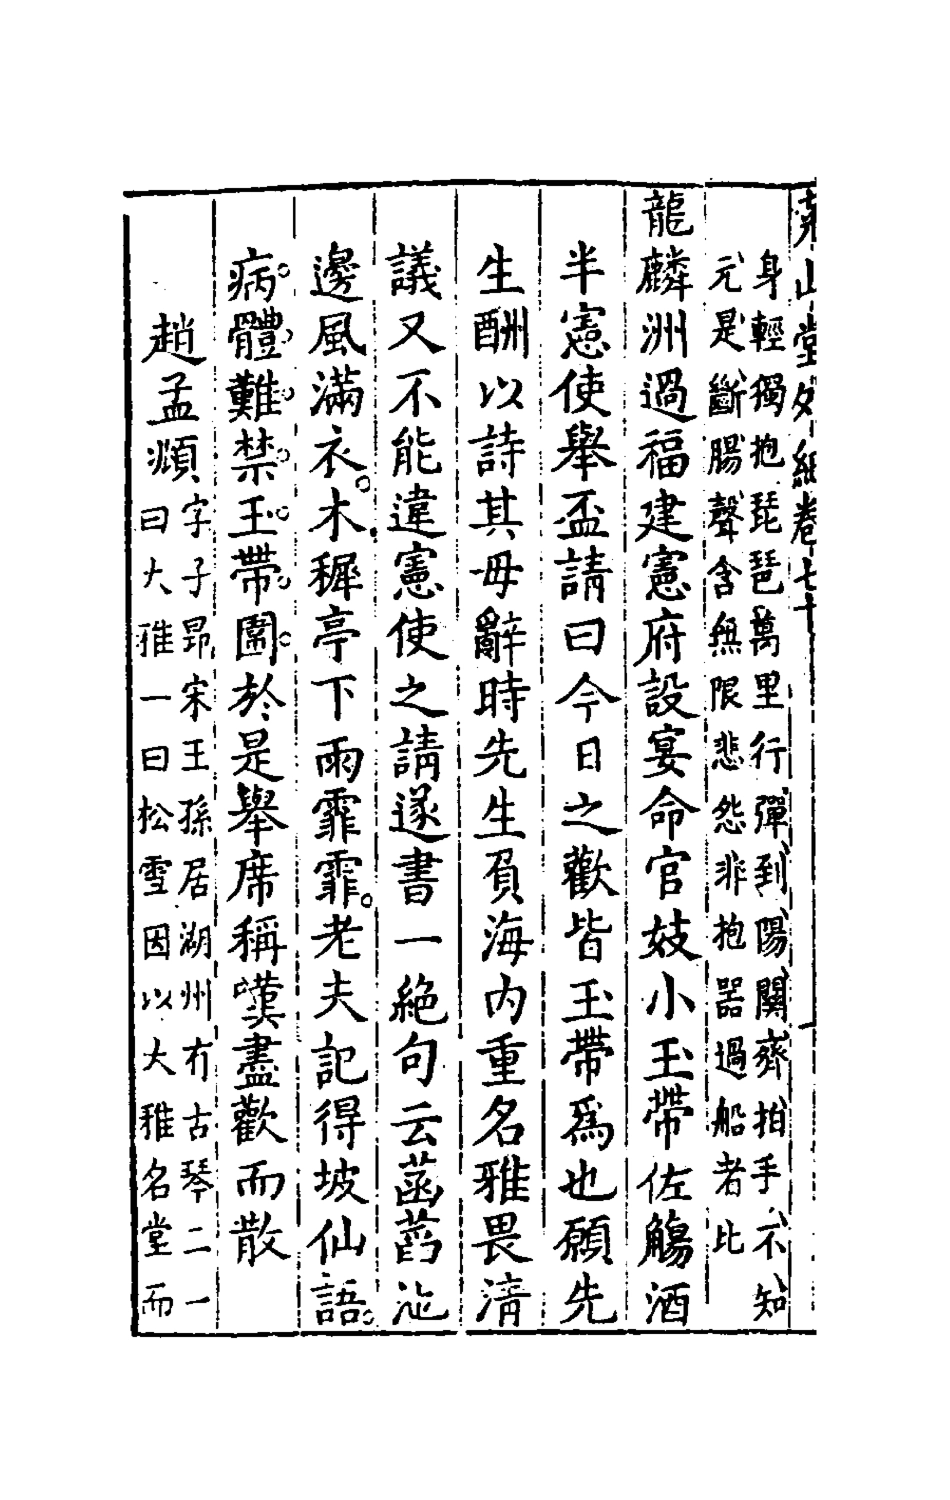 堯山堂外紀卷七十
身輕獨抱琵琶萬里行彈到陽關齊拍手不知
元是斷腸聲含無限悲怨非抱器過船者比
龍麟洲過福建憲府設宴命官妓小玉帶佐觴酒
半憲使舉盃請曰今日之歡皆玉帶爲也願先
生酬以詩其毋辭時先生負海内重名雅畏清
議又不能違憲使之請遂書一絶句云菡萏池
邊風滿衣木樨亭下雨霏霏老夫記得坡仙語
病體難禁玉帶圍於是舉席稱嘆盡歡而散
趙孟頫
字子昻宋王孫居湖州有古琴二一
曰大雅一曰松雪因以大雅名堂而